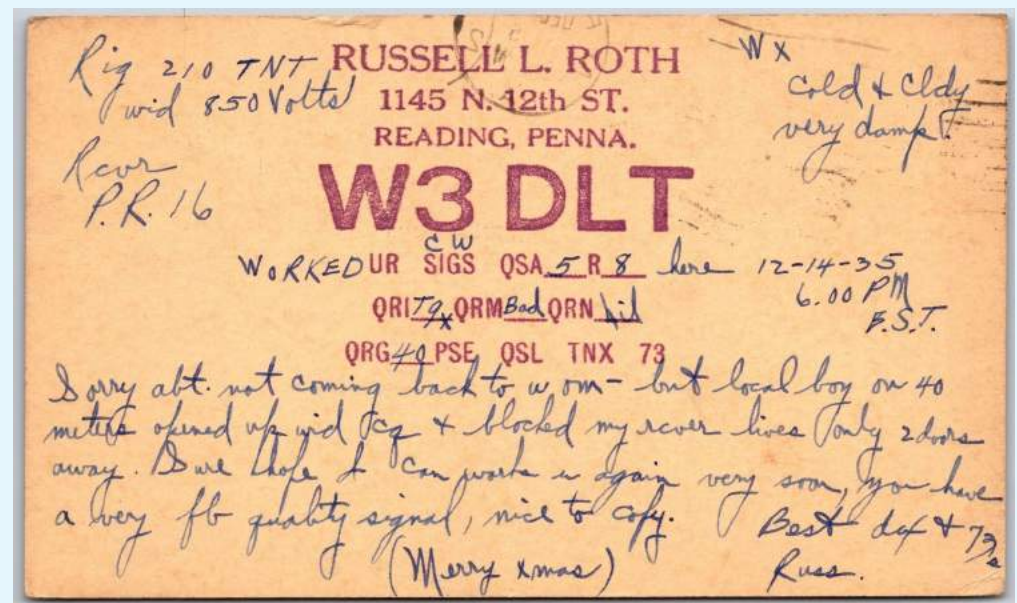 Rig 210 TNT
wid 850 Volts
Rcvr
P.R. 16
RUSSELL L. ROTH
1145 N. 12th ST.
READING, PENNA.
W3 DLT
Wx
Cold & Cldy
very damp.
CW
WORKED UR SIGS QSA 5 R 8 here 12-14-35
6.00 PM
E.S.T.
QRI T9x QRM Bad QRN Nil
QRG 40 PSE QSL TNX 73
Sorry abt. not coming back to u om- but local boy on 40
meters opened up wid cq & blocked my rcver lives only 2 doors
away. Sure hope I can work u again very soon, you have
a very fb quality signal, nice to copy.
Best dx & 73s
(Merry xmas)
Russ.